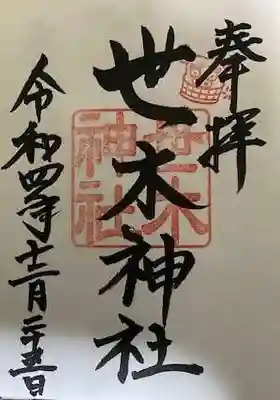 奉拝
世木神社
世木神社
令和四年十二月二十五日